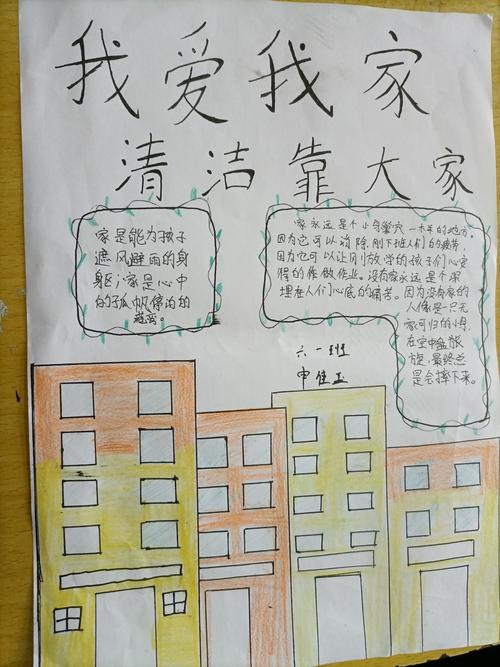 我爱我家
清洁靠大家
家是能为孩子
遮风避雨的身
躯；家是心中
的孤帆停泊的
港湾
家永远是个小令堂穴一木羊的地方
因为它可以消除刚下班人们的疲劳
因为它可以让刚放学的孩子们心安
得的作做作业。没有家永远是个深
埋在人们心底的痛苦。因为没有家的
人像是一只无
家可归的小鸟
在空中盘旅
旋，最终总
是会摔下来。
六一班
申佳玉